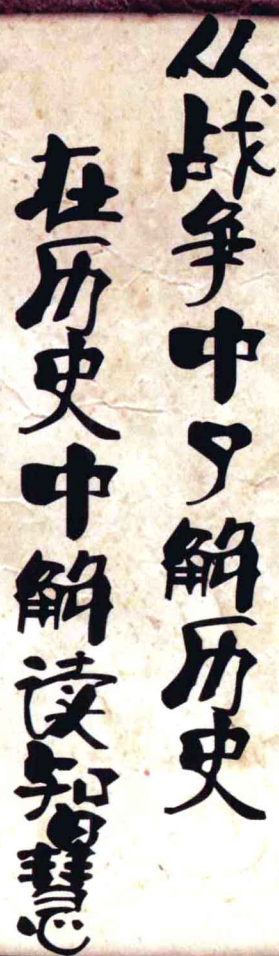 从战争中了解历史
在历史中解读智慧